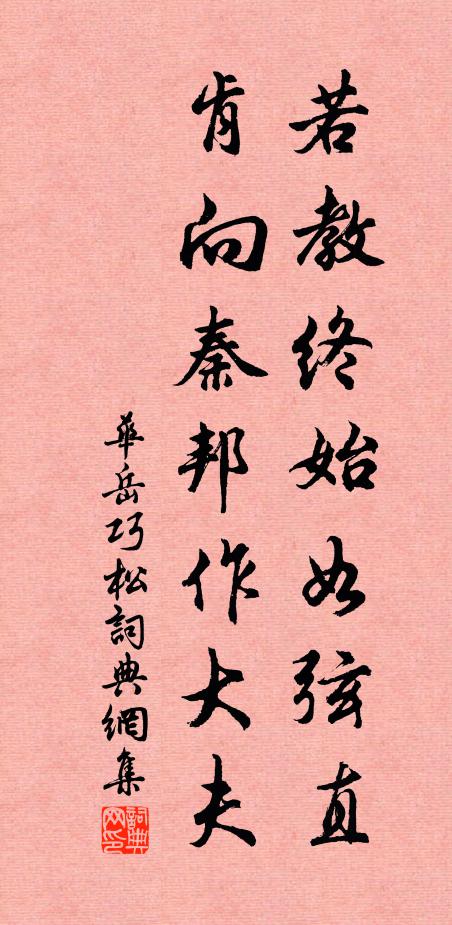 若教終始如弦直
肯向秦邦作大夫
華岳巧松詞典網集
詞典网印